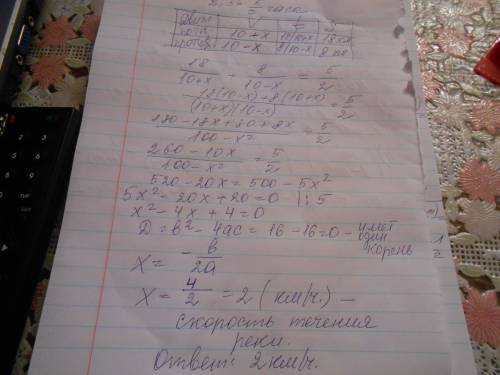 часа
Движ V t S
10+x 18/10+x 18 км
против 10-x 8/10-x 8 км
18/(10+x) + 8/(10-x) = 5/2
(18(10-x)+8(10+x))/((10+x)(10-x)) = 5/2
(180-18x+80+8x)/(100-x²) = 5/2
(260-10x)/(100-x²) = 5/2
520-20x = 500-5x²
5x²-20x+20=0 |:5
x²-4x+4=0
D = b²-4ac = 16-16=0 - имеет один корень
x = -b/2a
x = 4/2 = 2 (км/ч.) —
скорость течения
реки.
Ответ: 2 км/ч.